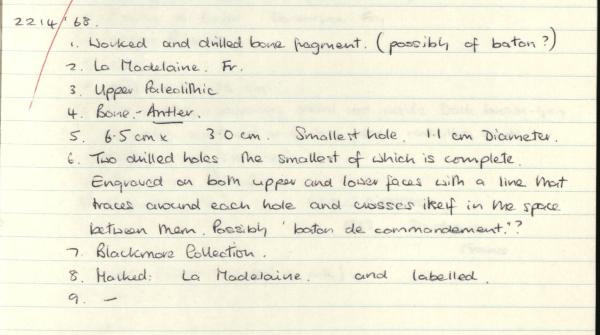 2214/'68.
1. Worked and drilled bone fragment. (possibly of baton?)
2. La Madelaine. Fr.
3. Upper Paleolithic
4. Bone. - Antler.
5. 6.5 cm x 3.0 cm. Smallest hole. 1.1 cm Diameter.
6. Two drilled holes the smallest of which is complete.
Engraved on both upper and lower faces with a line that
traces around each hole and crosses itself in the space
between them. Possibly 'baton de commandement.'?
7. Blackmore Collection.
8. Marked: La Madelaine. and labelled.
9. —